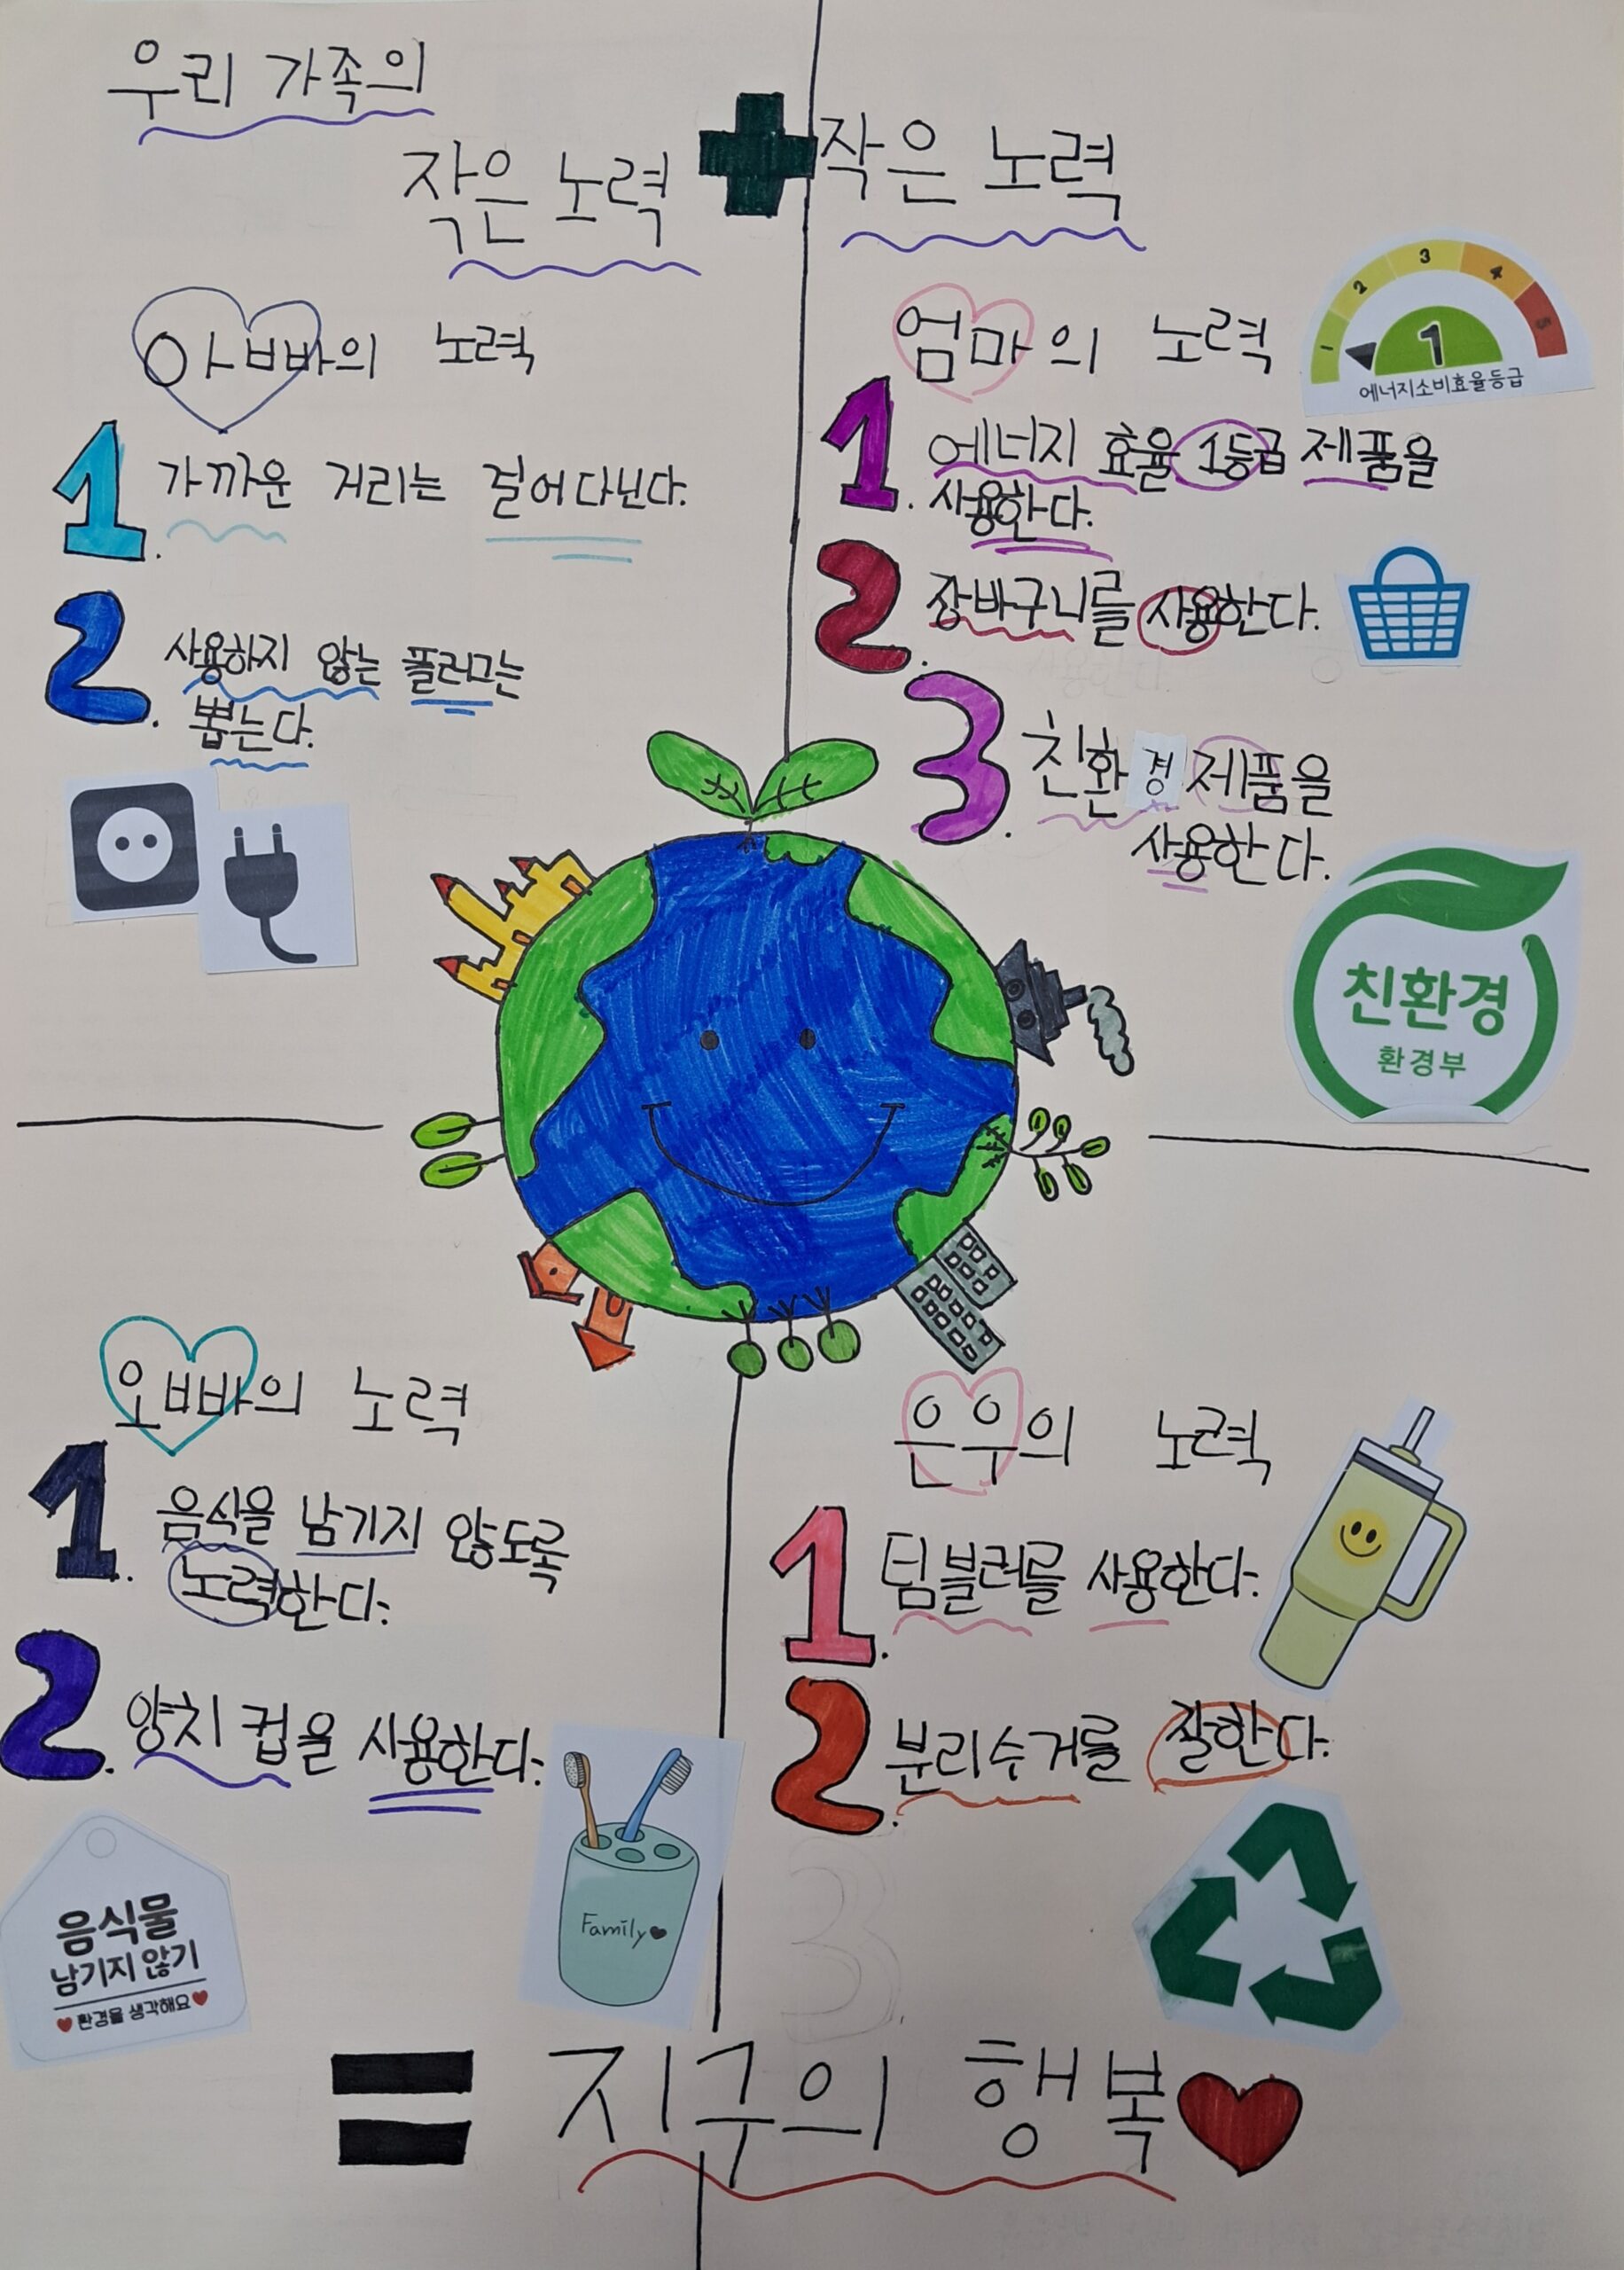 우리 가족의
작은 노력 + 작은 노력
아빠의 노력
1. 가까운 거리는 걸어다닌다.
2. 사용하지 않는 플러그는
뽑는다.
엄마의 노력
1 2 3 4 5
1
에너지소비효율등급
1. 에너지 효율 1등급 제품을
사용한다.
2. 장바구니를 사용한다.
3. 친환경 제품을
사용한다.
친환경
환경부
오빠의 노력
1. 음식을 남기지 않도록
노력한다.
2. 양치 컵을 사용한다.
Family
음식물
남기지 않기
환경을 생각해요
은우의 노력
1. 텀블러를 사용한다.
2. 분리수거를 잘한다.
3
= 지구의 행복